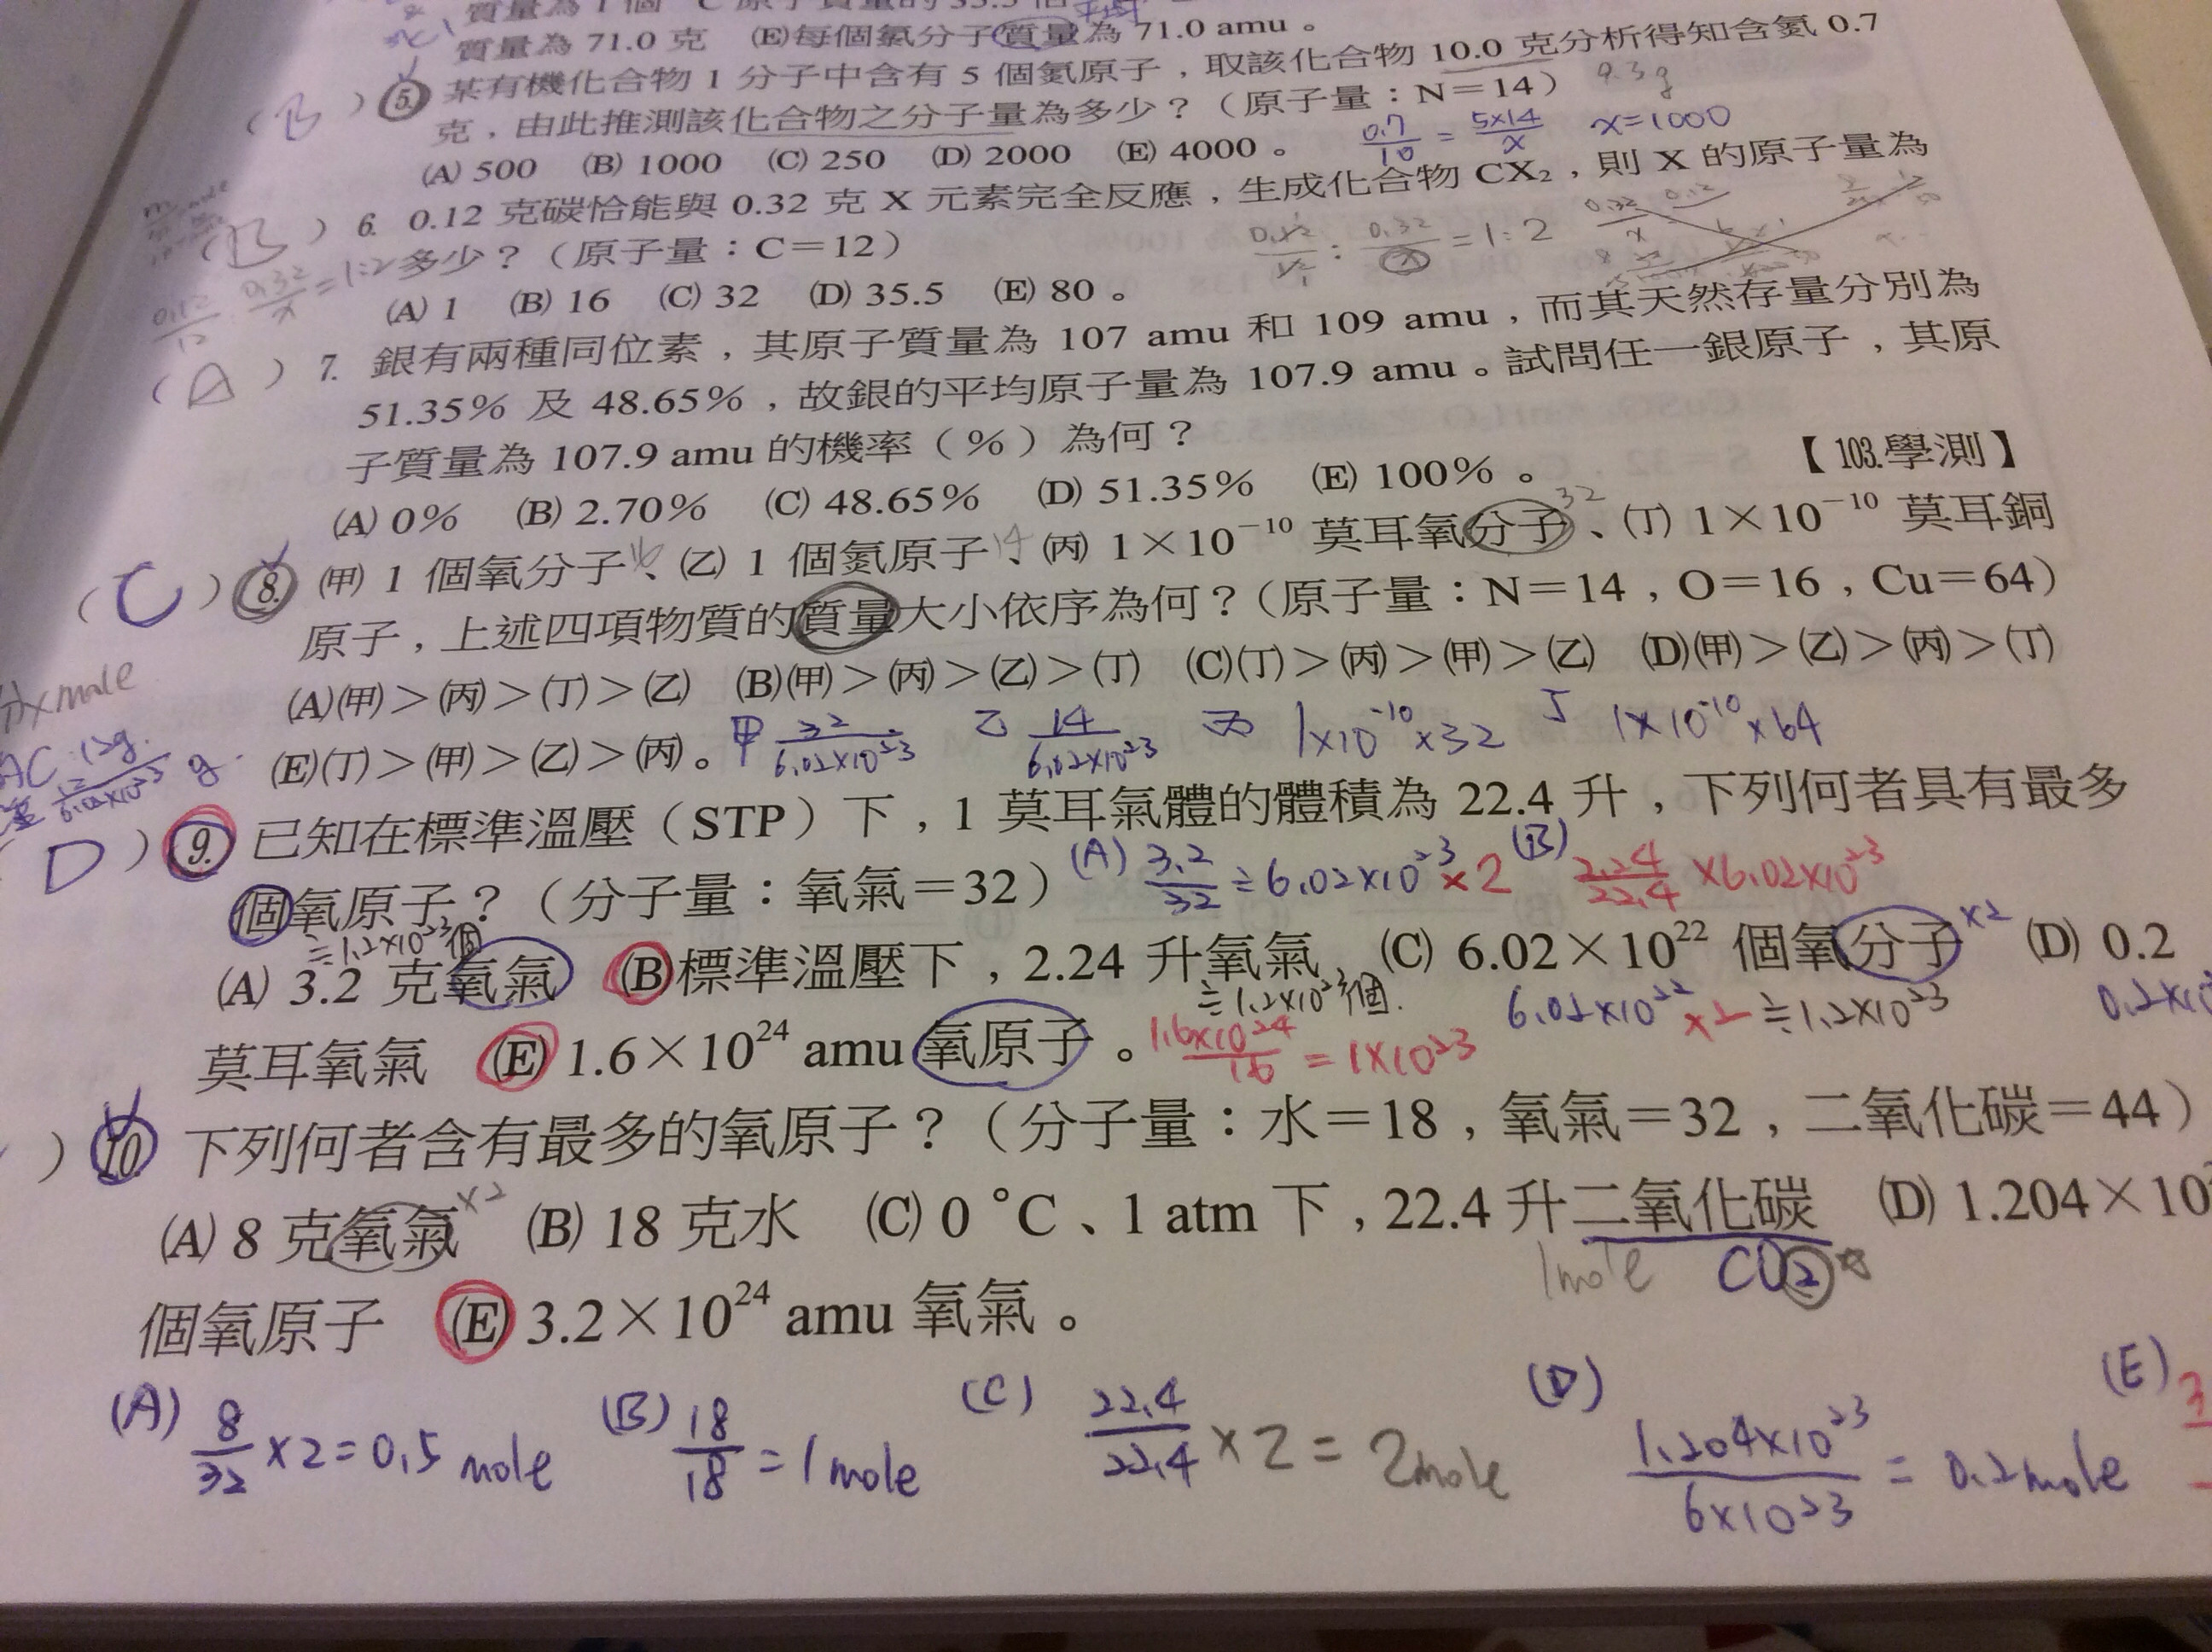 質量為 71.0 克 (E)每個氯分子質量為 71.0 amu。
(B) 5. 某有機化合物 1 分子中含有 5 個氮原子，取該化合物 10.0 克分析得知含氮 0.7
9.3g
克，由此推測該化合物之分子量為多少？（原子量：N＝14）
0.7/10 = 5×14/x x=1000
(A) 500 (B) 1000 (C) 250 (D) 2000 (E) 4000。
(B) 6. 0.12 克碳恰能與 0.32 克 X 元素完全反應，生成化合物 CX₂，則 X 的原子量為
多少？（原子量：C＝12）
0.12/12 : 0.32/x =1:2
0.12/12 : 0.32/x =1:2
(A) 1 (B) 16 (C) 32 (D) 35.5 (E) 80。
(A) 7. 銀有兩種同位素，其原子質量為 107 amu 和 109 amu，而其天然存量分別為
51.35% 及 48.65%，故銀的平均原子量為 107.9 amu。試問任一銀原子，其原
子質量為 107.9 amu 的機率（%）為何？ 【103.學測】
(A) 0% (B) 2.70% (C) 48.65% (D) 51.35% (E) 100%。
(C) 8. (甲) 1 個氧分子、(乙) 1 個氮原子、(丙) 1×10⁻¹⁰ 莫耳氧分子、(丁) 1×10⁻¹⁰ 莫耳銅
16 14 32
原子，上述四項物質的質量大小依序為何？（原子量：N＝14，O＝16，Cu＝64）
(A)(甲)＞(丙)＞(丁)＞(乙) (B)(甲)＞(丙)＞(乙)＞(丁) (C)(丁)＞(丙)＞(甲)＞(乙) (D)(甲)＞(乙)＞(丙)＞(丁)
(E)(丁)＞(甲)＞(乙)＞(丙)。
甲 32/6.02×10²³ 乙 14/6.02×10²³ 丙 1×10⁻¹⁰×32 丁 1×10⁻¹⁰×64
mole
12g
12/6.02×10²³ g
(D) 9. 已知在標準溫壓（STP）下，1 莫耳氣體的體積為 22.4 升，下列何者具有最多
個氧原子？（分子量：氧氣＝32）
(A) 3.2/32 ≒ 6.02×10²³×2 (B) 2.24/22.4 ×6.02×10²³
≒1.2×10²³個
(A) 3.2 克氧氣 (B) 標準溫壓下，2.24 升氧氣 (C) 6.02×10²² 個氧分子 (D) 0.2
×2
≒1.2×10²³個. 6.02×10²²×2≒1.2×10²³
莫耳氧氣 (E) 1.6×10²⁴ amu 氧原子。
1.6×10²⁴/16 = 1×10²³
10. 下列何者含有最多的氧原子？（分子量：水＝18，氧氣＝32，二氧化碳＝44）
(A) 8 克氧氣 (B) 18 克水 (C) 0 °C、1 atm 下，22.4 升二氧化碳 (D) 1.204×10
×2
1mole CO2
個氧原子 (E) 3.2×10²⁴ amu 氧氣。
(A) 8/32 ×2=0.5 mole (B) 18/18 =1mole (C) 22.4/22.4 ×2=2mole (D) 1.204×10²³/6×10²³ = 0.2mole (E)